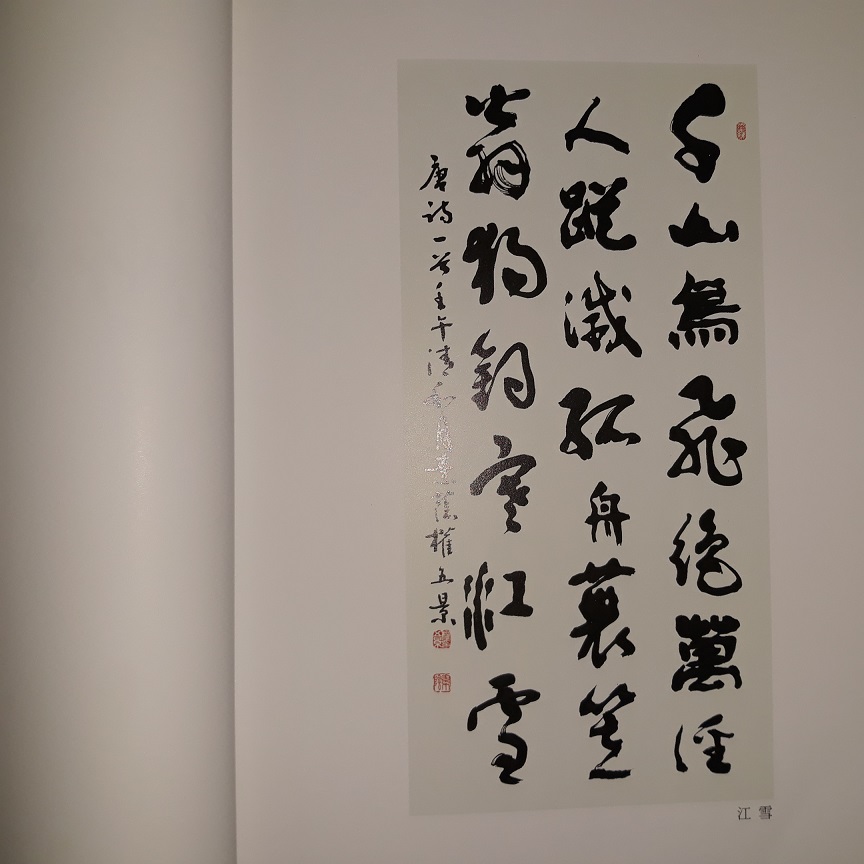 千山鳥飛絶萬徑
人蹤滅孤舟蓑笠
翁獨釣寒江雪
唐詩一首壬午清和月權五景
江雪